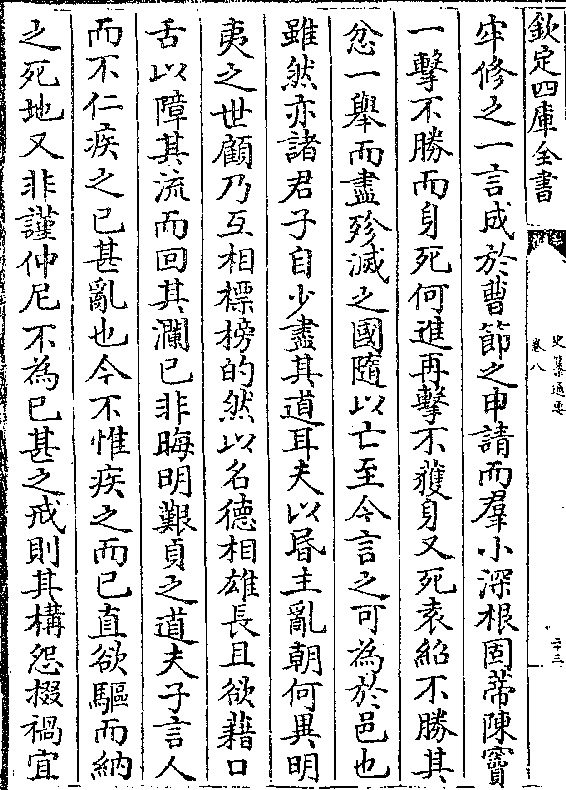 欽定四庫全書
史纂通要
卷八
二十三
牢修之一言成於曹節之申請而羣小深根固蔕陳竇
一擊不勝而身死何進再擊不獲身又死袁紹不勝其
忿一舉而盡殄滅之國隨以亡至今言之可為於邑也
雖然亦諸君子自少盡其道耳夫以昬主亂朝何異明
夷之世顧乃互相標榜的然以名德相雄長且欲藉口
舌以障其流而回其瀾已非晦明艱貞之道夫子言人
而不仁疾之已甚亂也今不惟疾之而已直欲驅而納
之死地又非謹仲尼不為已甚之戒則其構怨掇禍宜